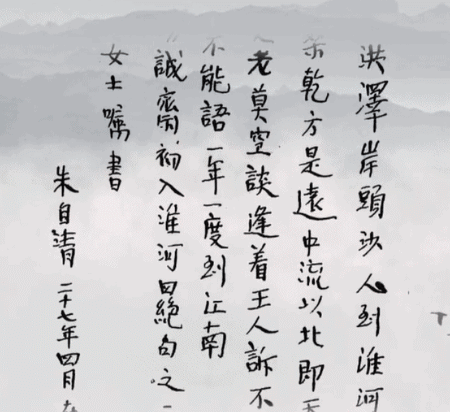 洪澤岸頭沙人到淮河
乾方是遠中流以北即
老莫空談逢着王人訴不
不能語一年一度到江南
誠齋初入淮河四絕句之
女士嘱書
朱自清二十七年四月